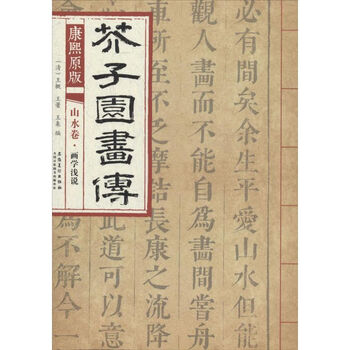 康熙原版
芥子園畫傳
山水卷·画学浅说
（清）王概 王蓍 王臬 编
有間矣余生平愛山水但能
觀人畫而不能自為畫間嘗舟
長康之流
道可以意
解今一